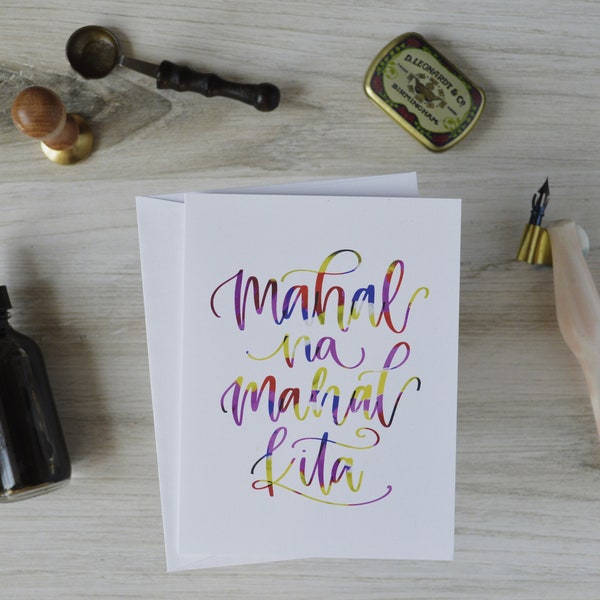 D. LEONARDT & CO.
BIRMINGHAM
mahal
na
mahal
kita